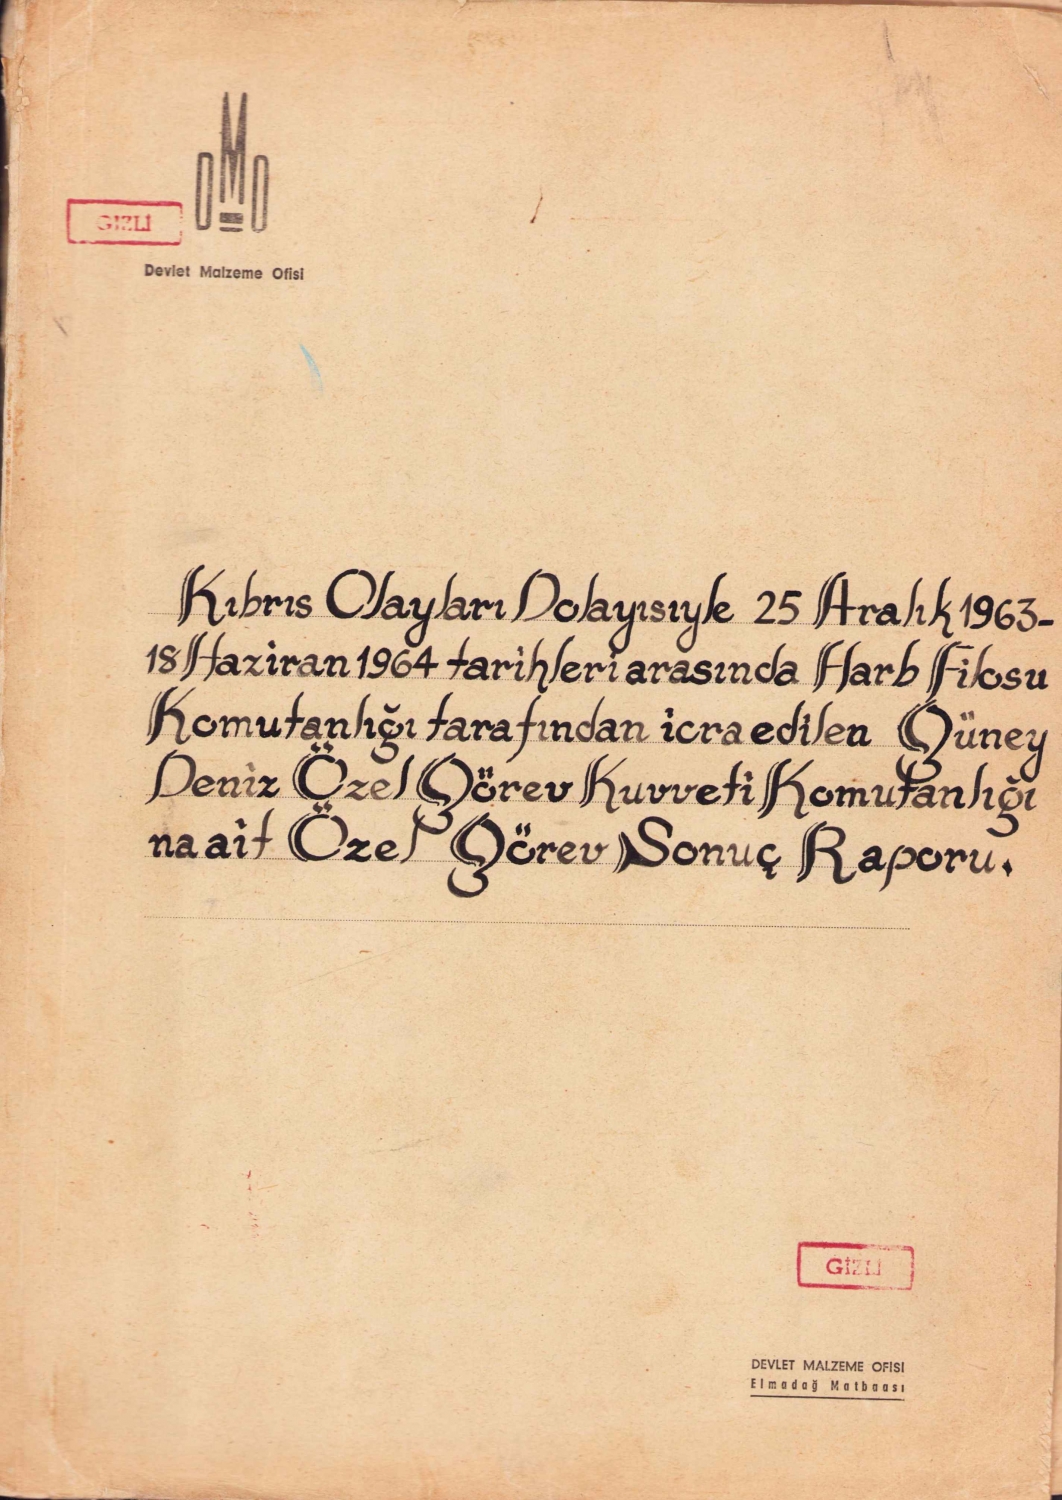 DMO
GİZLİ
Devlet Malzeme Ofisi
Kıbrıs Olayları Dolayısıyle 25 Aralık 1963-
18 Haziran 1964 tarihleri arasında Harb Filosu
Komutanlığı tarafından icra edilen Güney
Deniz Özel Görev Kuvveti Komutanlığı
na ait Özel Görev Sonuç Raporu.
GİZLİ
DEVLET MALZEME OFİSİ
Elmadağ Matbaası